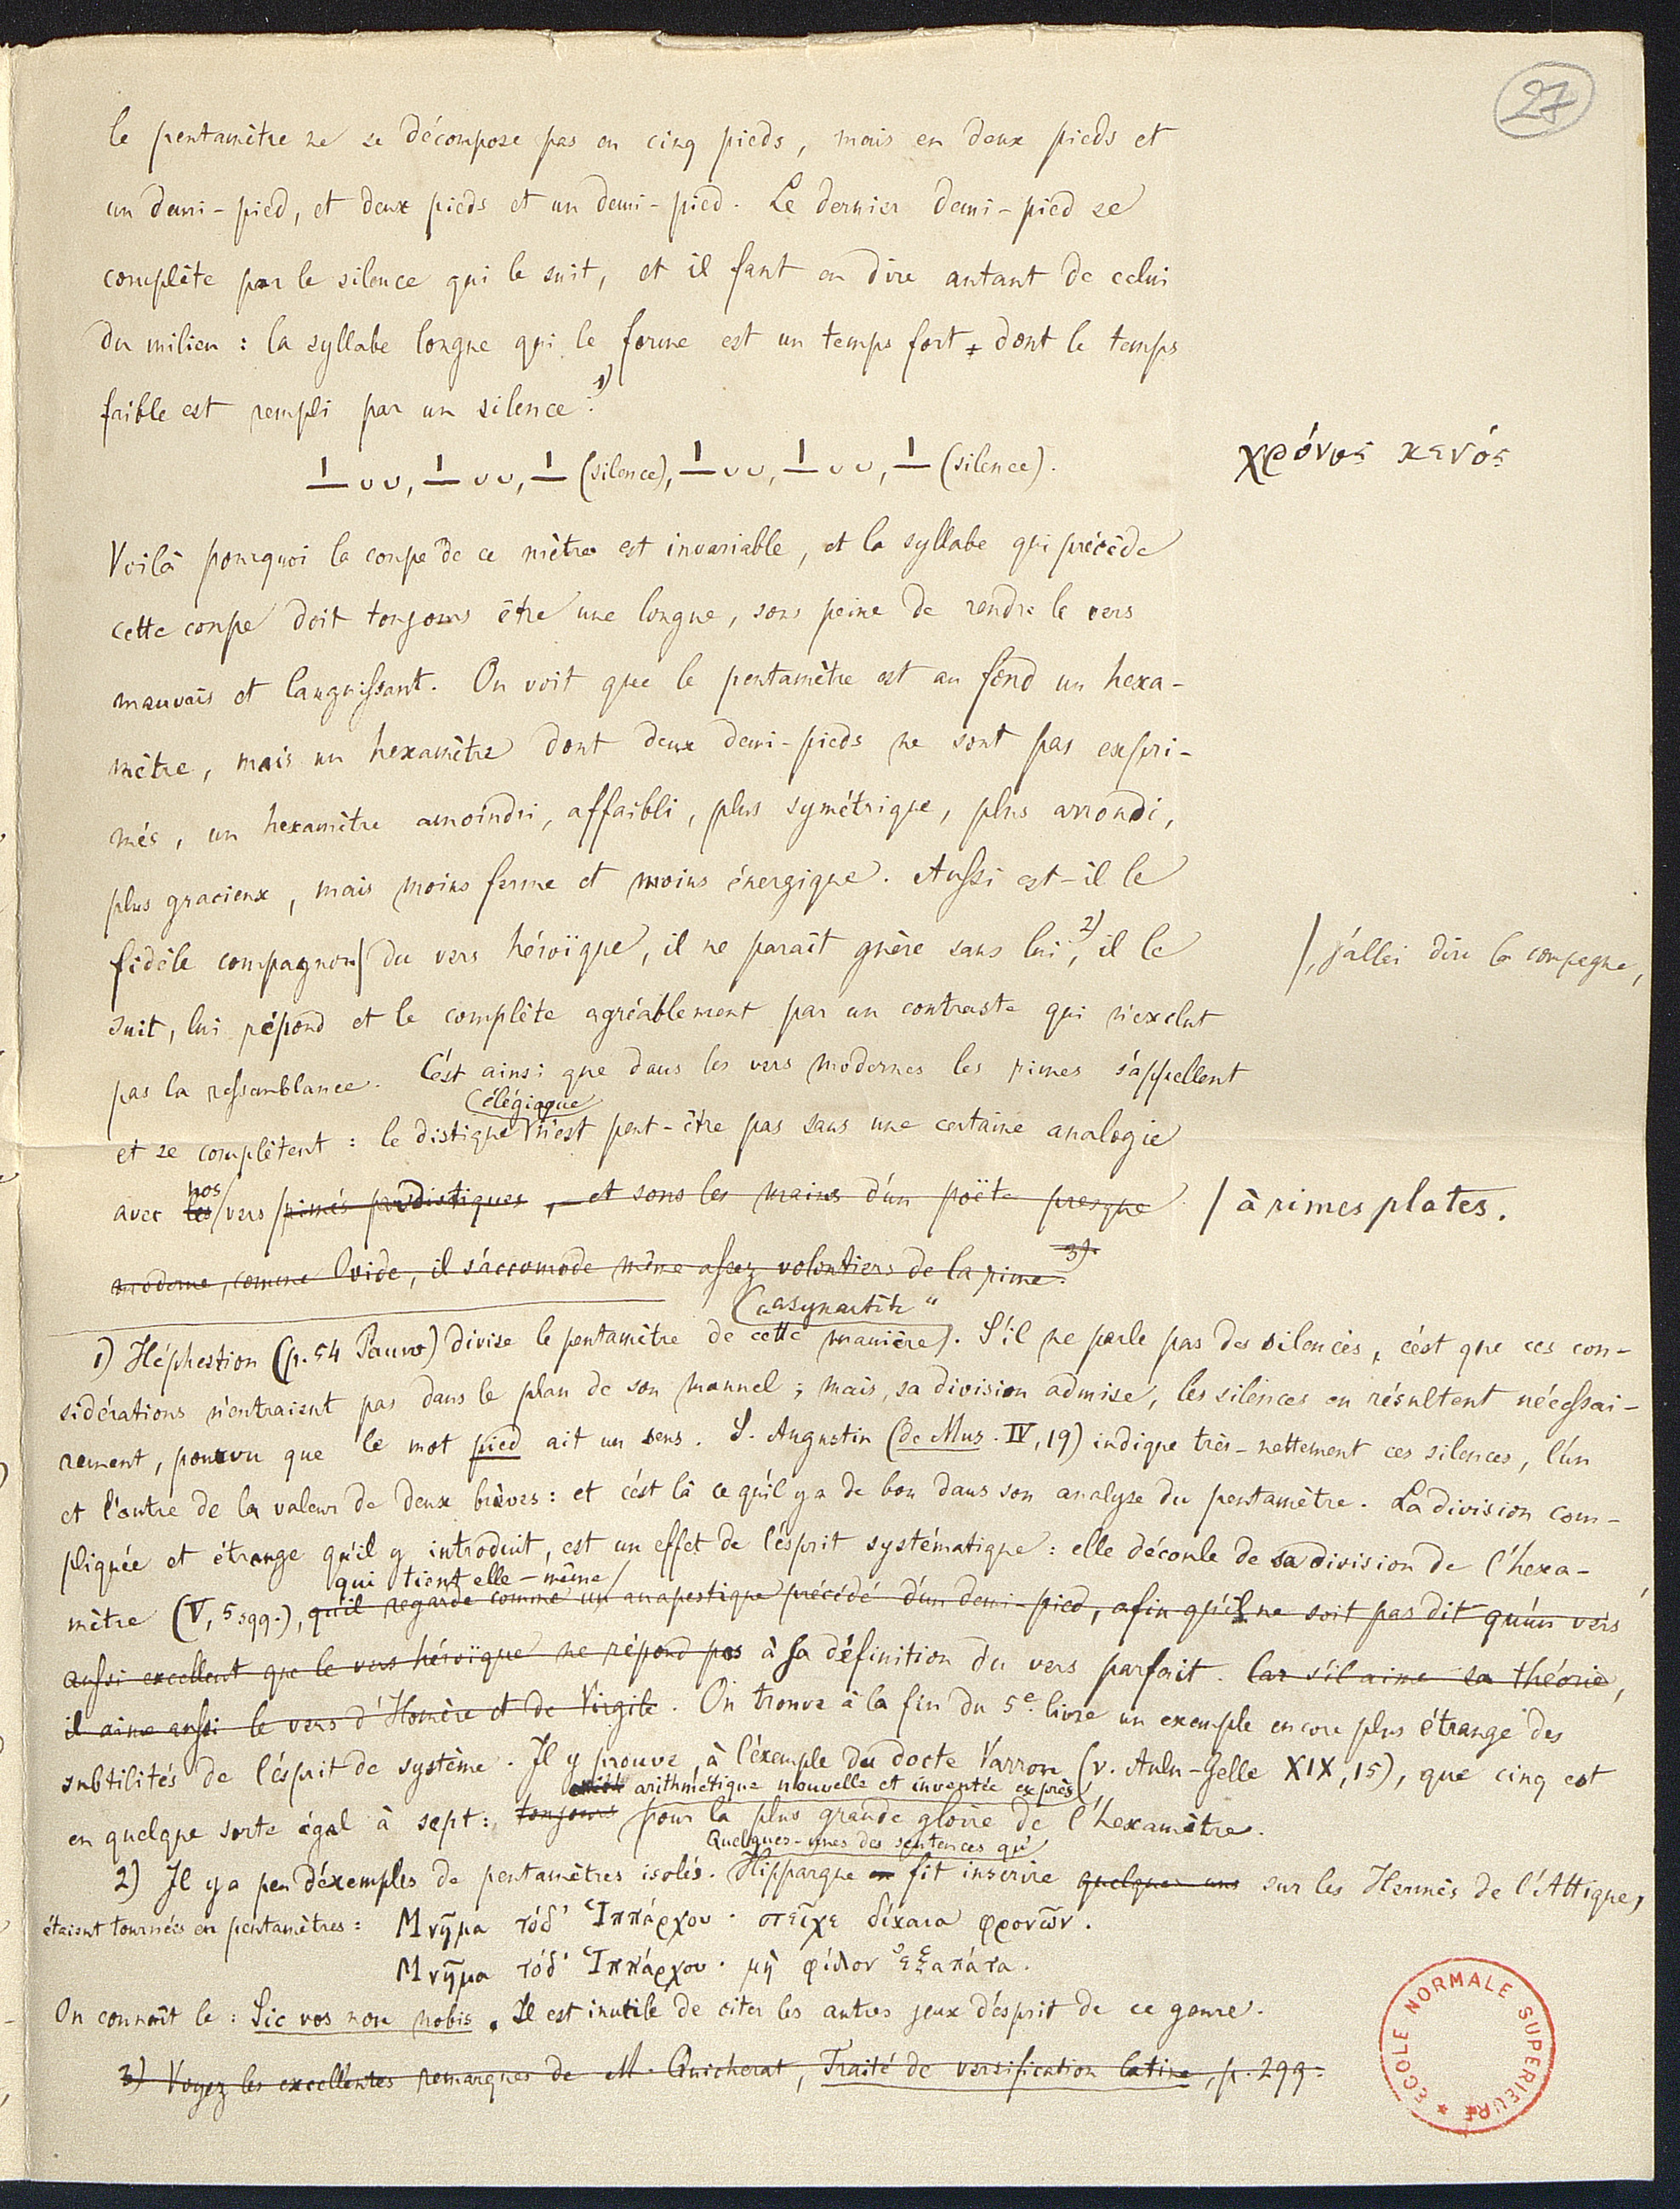 27
le pentamètre ne se décompose pas en cinq pieds, mais en deux pieds et
un demi-pied, et deux pieds et un demi-pied. Le dernier demi-pied se
complète par le silence qui le suit, et il faut en dire autant de celui
du milieu : la syllabe longue qui le forme est un temps fort, dont le temps
faible est rempli par un silence 1):
— ∪∪, — ∪∪, — (silence), — ∪∪, — ∪∪, — (silence).
χρόνος κενός
Voilà pourquoi la coupe de ce mètre est invariable, et la syllabe qui précède
cette coupe doit toujours être une longue, sous peine de rendre le vers
mauvais et languissant. On voit que le pentamètre est au fond un hexa-
mètre, mais un hexamètre dont deux demi-pieds ne sont pas expri-
més, un hexamètre amoindri, affaibli, plus symétrique, plus arrondi,
plus gracieux, mais moins ferme et moins énergique. Aussi est-il le
fidèle compagnon/ du vers héroïque, il ne paraît guère sans lui 2), il le
/, j'allai dire la compagne,
suit, lui répond et le complète agréablement par un contraste qui n'exclut
pas la ressemblance. C'est ainsi que dans les vers modernes les rimes s'appellent
élégiaque
et se complètent : le distique n'est peut-être pas sans une certaine analogie
nos
avec les vers / rimés par distiques, et sous les mains d'un poëte presque
/ à rimes plates.
moderne, comme Ovide, il s'accomode même assez volontiers de la rime 3).
("asynartète"
1) Héphestion (p. 54 Pauw) divise le pentamètre de cette manière). S'il ne parle pas des silences, c'est que ces con-
sidérations n'entraient pas dans le plan de son manuel ; mais, sa division admise, les silences en résultent nécessai-
rement, pourvu que le mot pied ait un sens. S. Augustin (de Mus. IV, 19) indique très-nettement ces silences, l'un
et l'autre de la valeur de deux brèves : et c'est là ce qu'il y a de bon dans son analyse du pentamètre. La division com-
pliquée et étrange qu'il y introduit, est un effet de l'esprit systématique : elle découle de sa division de l'hexa-
qui tient elle-même
mètre (V, 5 sqq.), qu'il regarde comme un anapestique précédé d'un demi-pied, afin qu'il ne soit pas dit qu'un vers
aussi excellent que le vers héroïque ne répond pas à sa définition du vers parfait. Car s'il aime sa théorie,
il aime aussi le vers d'Homère et de Virgile. On trouve à la fin du 5e livre un exemple encore plus étrange des
subtilités de l'esprit de système. Il y prouve, à l'exemple du docte Varron (v. Aulu-Gelle XIX, 15), que cinq est
arithmétique nouvelle et inventée exprès
en quelque sorte égal à sept : toujours pour la plus grande gloire de l'hexamètre.
Quelques-unes des sentences qu'
2) Il y a peu d'exemples de pentamètres isolés. Hippargue en fit inscrire quelques uns sur les Hermès de l'Attique,
étaient tournées en pentamètres : Μνῆμα τόδ' Ἱππάρχου · στεῖχε δίκαια φρονῶν.
Μνῆμα τόδ' Ἱππάρχου · μὴ φίλον ἐξαπάτα.
On connaît le : Sic vos non nobis. Il est inutile de citer les autres jeux d'esprit de ce genre.
3) Voyez les excellentes remarques de M. Quicherat, Traité de versification latine, p. 299.
ECOLE NORMALE SUPERIEURE